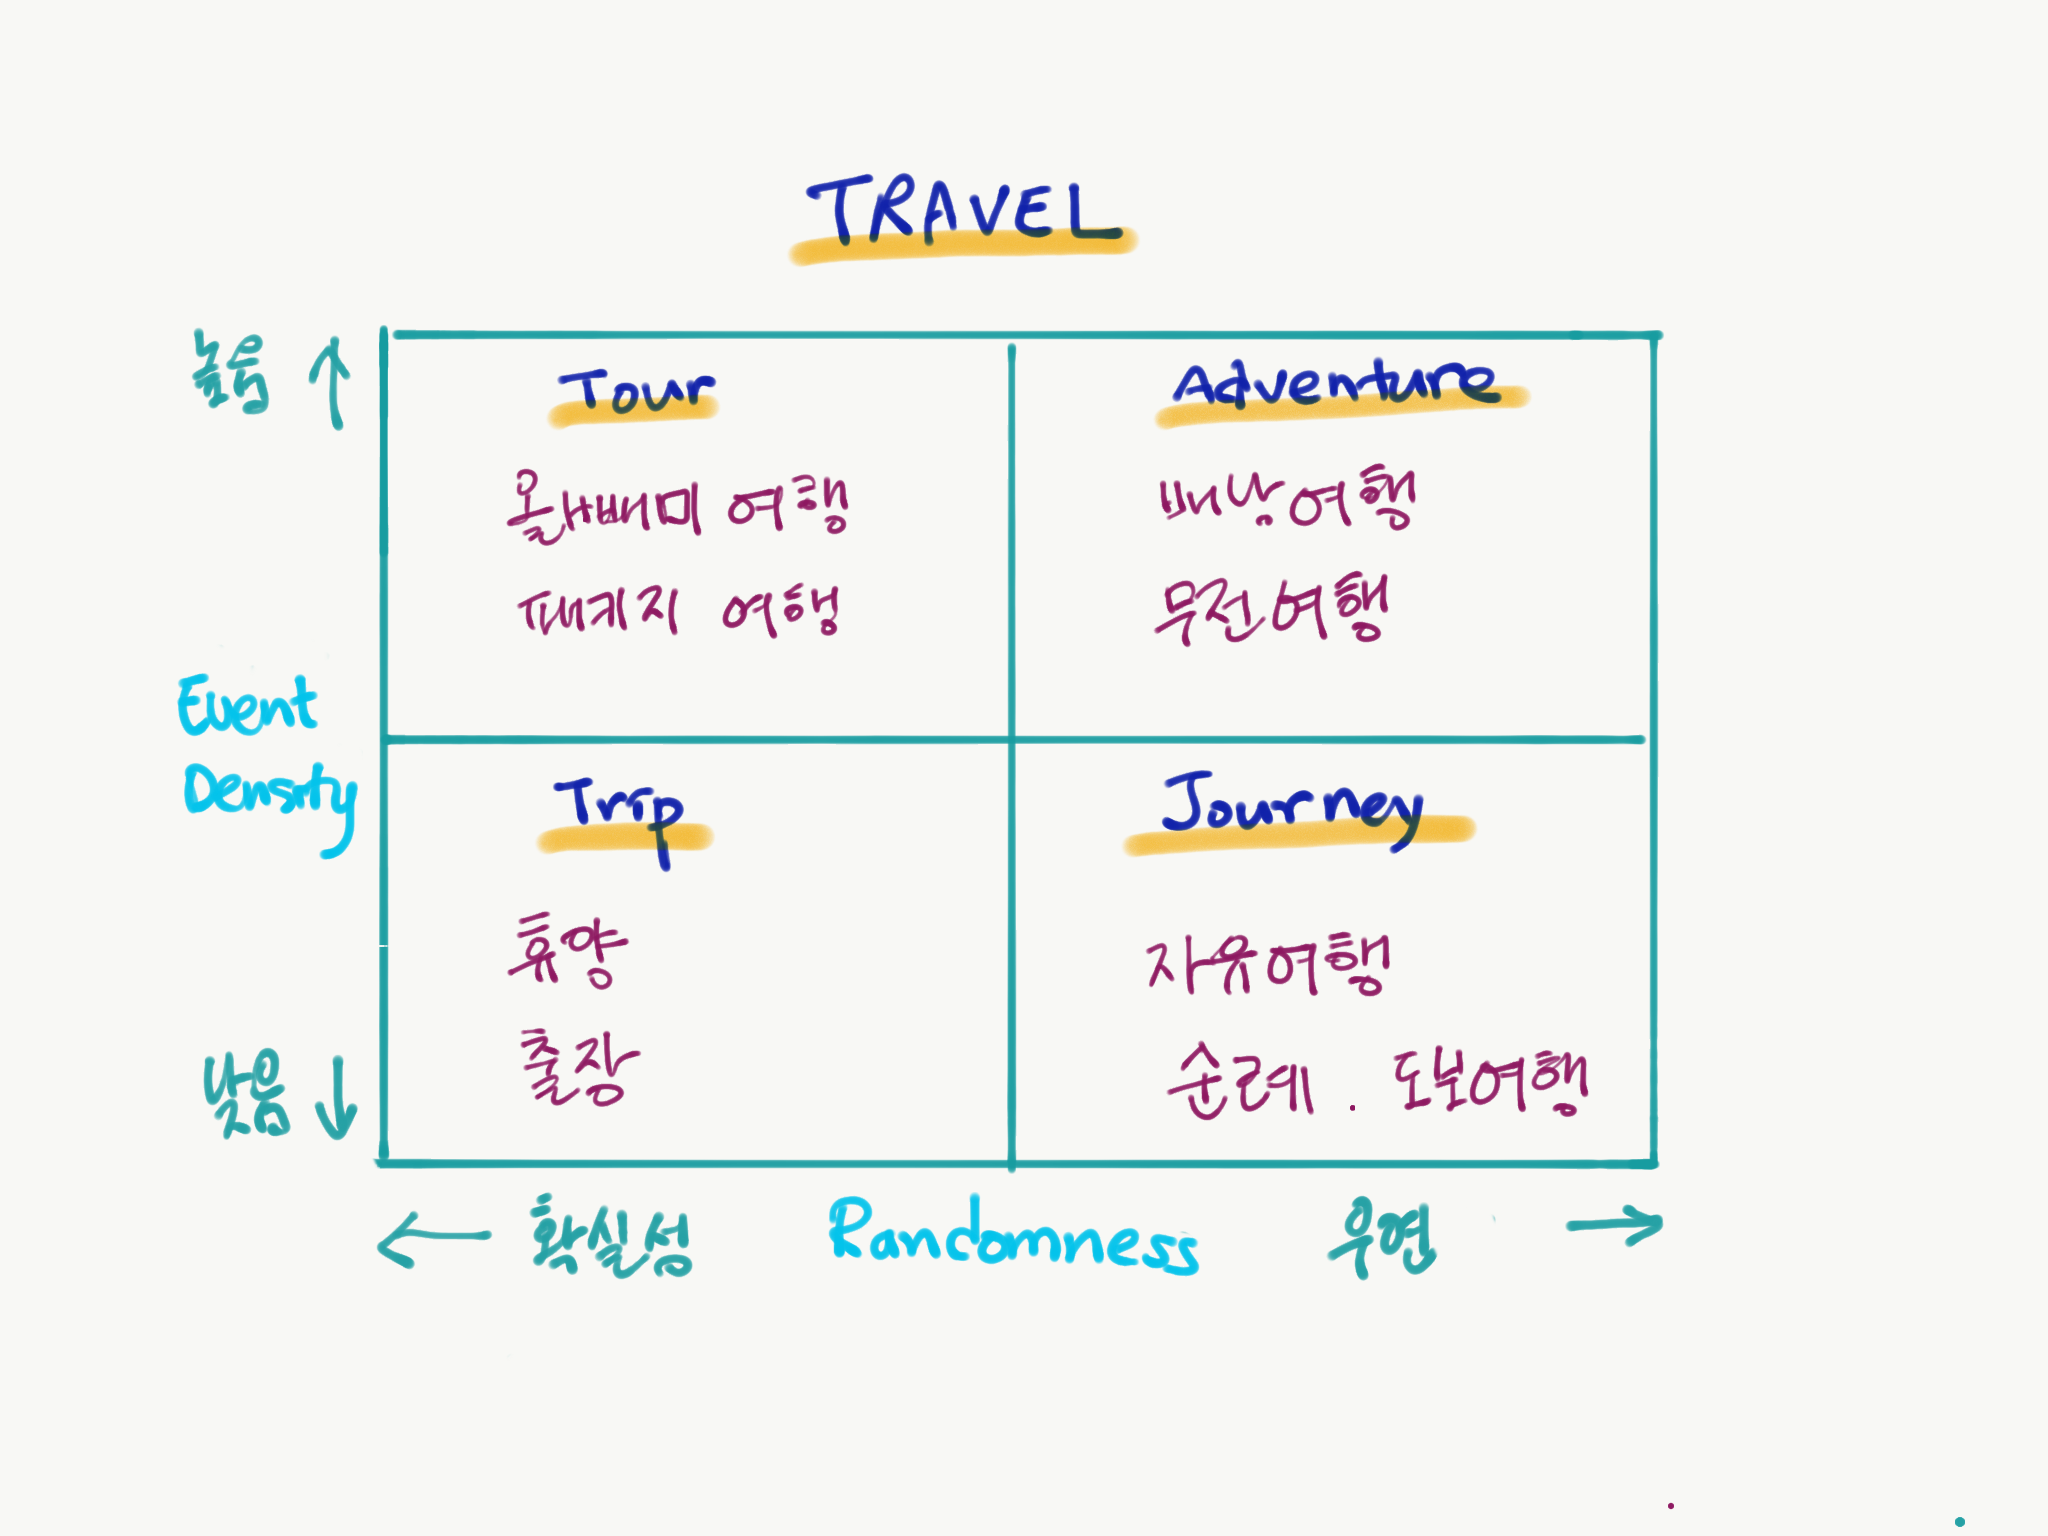 TRAVEL
높음 ↑
Tour
올빼미 여행
패키지 여행
Adventure
배낭여행
무전여행
Event
Density
Trip
휴양
출장
Journey
자유여행
순례 . 도보여행
낮음 ↓
← 확실성 Randomness 우연 →